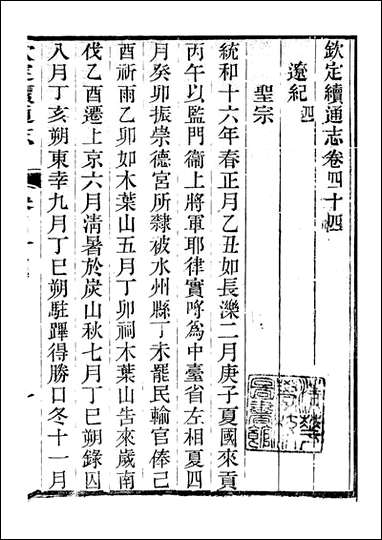 欽定續通志卷四十四
遼紀四
聖宗
統和十六年春正月乙丑如長濼二月庚子夏國來貢
丙午以監門衞上將軍耶律實哷為中臺省左相夏四
月癸卯振崇德宮所隸被水州縣丁未罷民輸官俸己
酉祈雨乙卯如木葉山五月丁卯祠木葉山告來歲南
伐乙酉還上京六月清暑於炭山秋七月丁巳朔錄囚
八月丁亥朔東幸九月丁巳朔駐蹕得勝口冬十一月